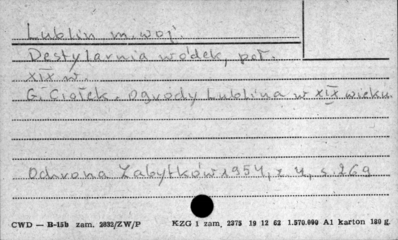 Lublin m. woj.
Destylarnia wódek, poł.
XIX w.
G. Ciołek. Ogrody Lublina w XIX wieku.
Ochrona Zabytków 1954, z. 4, s. 269
CWD — B-15b zam. 2832/ZW/P KZG 1 zam. 2375 19 12 62 1.570.000 A1 karton 180 g.